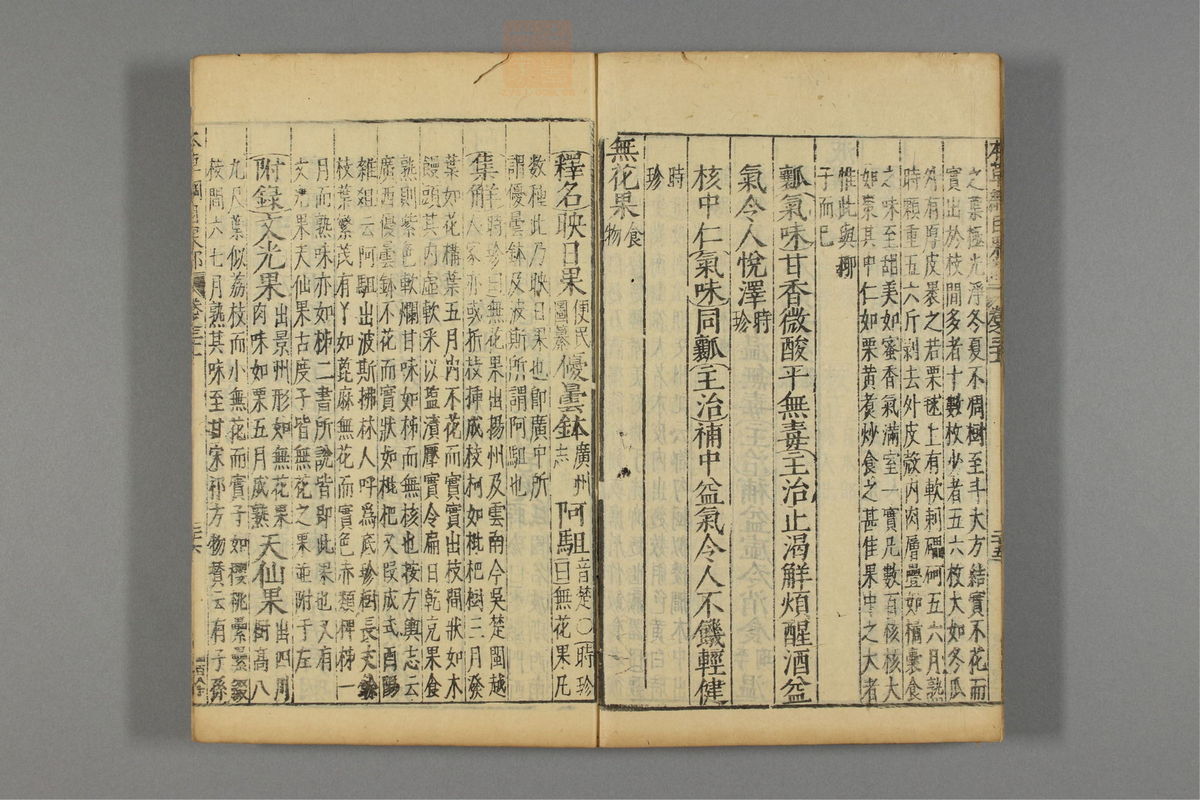 之葉極光淨冬夏不凋樹至斗大方結實不花而
實出於枝間多者十數枚少者五六枚大如冬瓜
外有厚皮裹之若栗毬上有軟刺礧砢五六月熟
時顆重五六斤剥去外皮殼內肉層疊如橘囊食
之味至甜美如蜜香氣滿室一實凡數百核核大
如棗其中仁如栗黄煑炒食之甚佳果中之大者
惟此與椰
子而已
瓤氣味甘香微酸平無毒主治止渴解煩醒酒益
氣令人悅澤時珍
核中仁氣味同瓤主治補中益氣令人不饑輕健
時珍
無花果食物
釋名映日果便民圖纂優曇鉢廣州志阿駔音楚〇時珍曰無花果凡
數種此乃映日果也即廣中所
謂優曇鉢及波斯所謂阿駔也
集解時珍曰無花果出揚州及雲南今吳楚閩越
人家亦或折枝揷成枝柯如枇杷樹三月發
葉如花構葉五月內不花而實實出枝間狀如木
饅頭其內虛軟采以鹽漬壓實令扁日乾充果食
熟則紫色軟爛甘味如柿而無核也按方輿志云
廣西優曇鉢不花而實狀如枇杷又段成式酉陽
雜俎云阿駔出波斯拂林人呼爲底珍樹長丈餘
枝葉繁茂有丫如蓖麻無花而實色赤類椑柿一
月而熟味亦如柿二書所說皆即此果也又有
文光果天仙果古度子皆無花之果並附于左
附錄文光果出景州形如無花果肉味如栗五月成熟天仙果出四川樹高八
九尺葉似荔枝而小無花而實子如櫻桃纍纍綴
枝間六七月熟其味至甘宋祁方物贊云有子孫